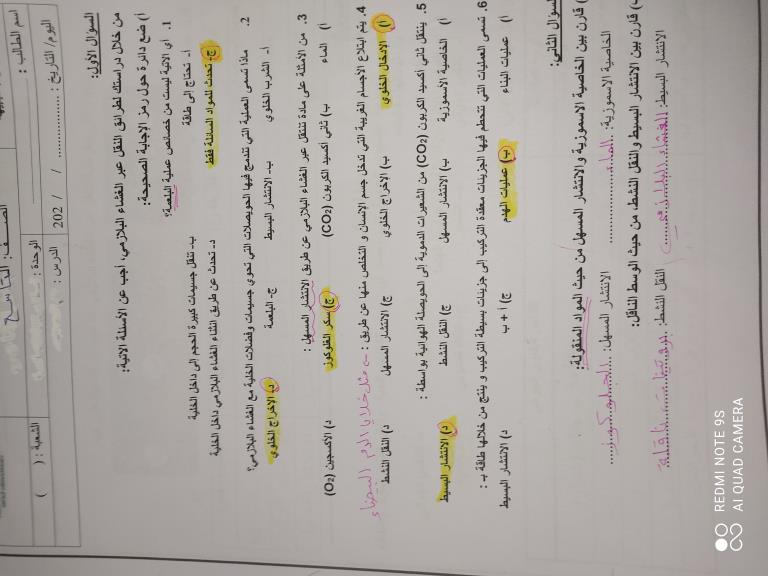 اسم الطالب :
الصـــف: التاسع
الشعبة : ( )
اليوم/ التاريخ : .............. / / 202
الوحدة :
الدرس :
السؤال الأول:
من خلال دراستك لطرائق النقل عبر الغشاء البلازمي، أجب عن الأسئلة الآتية:
أ) ضع دائرة حول رمز الإجابة الصحيحة:
1. أي الآتية ليست من خصائص عملية البلعمة؟
أ- تحتاج إلى طاقة
ب- تنقل جسيمات كبيرة الحجم إلى داخل الخلية
ج- تحدث للمواد السائلة فقط
د- تحدث عن طريق انثناء الغشاء البلازمي داخل الخلية
2. ماذا تسمى العملية التي تندمج فيها الحويصلات التي تحوي جسيمات وفضلات الخلية مع الغشاء البلازمي؟
أ- الشرب الخلوي ب- الانتشار البسيط ج- البلعمة د- الإخراج الخلوي
3. من الأمثلة على مادة تنتقل عبر الغشاء البلازمي عن طريق الانتشار المسهل :
أ) الماء ب) ثاني أكسيد الكربون (CO₂) ج) سكر الغلوكوز د) الأكسجين (O₂)
4. يتم ابتلاع الأجسام الغريبة التي تدخل جسم الإنسان و التخلص منها عن طريق : مثل خلايا الدم البيضاء
أ) الإدخال الخلوي ب) الإخراج الخلوي ج) الانتشار المسهل د) النقل النشط
5. ينتقل ثاني أكسيد الكربون (CO₂) من الشعيرات الدموية إلى الحويصلة الهوائية بواسطة :
أ) الخاصية الأسموزية ب) الانتشار المسهل ج) النقل النشط د) الانتشار البسيط
6. تسمى العمليات التي تتحطم فيها الجزيئات معقدة التركيب إلى جزيئات بسيطة التركيب و ينتج من خلالها طاقة ب :
أ) عمليات البناء ب) عمليات الهدم ج) أ + ب د) الانتشار البسيط
السؤال الثاني:
) قارن بين الخاصية الاسموزية والانتشار المسهل من حيث المواد المنقولة:
الخاصية الاسموزية: الماء الانتشار المسهل: الجلوكوز
) قارن بين الانتشار البسيط والنقل النشط، من حيث الوسط الناقل:
الانتشار البسيط: الغشاء البلازمي النقل النشط: بروتينات ناقلة
REDMI NOTE 9S
AI QUAD CAMERA